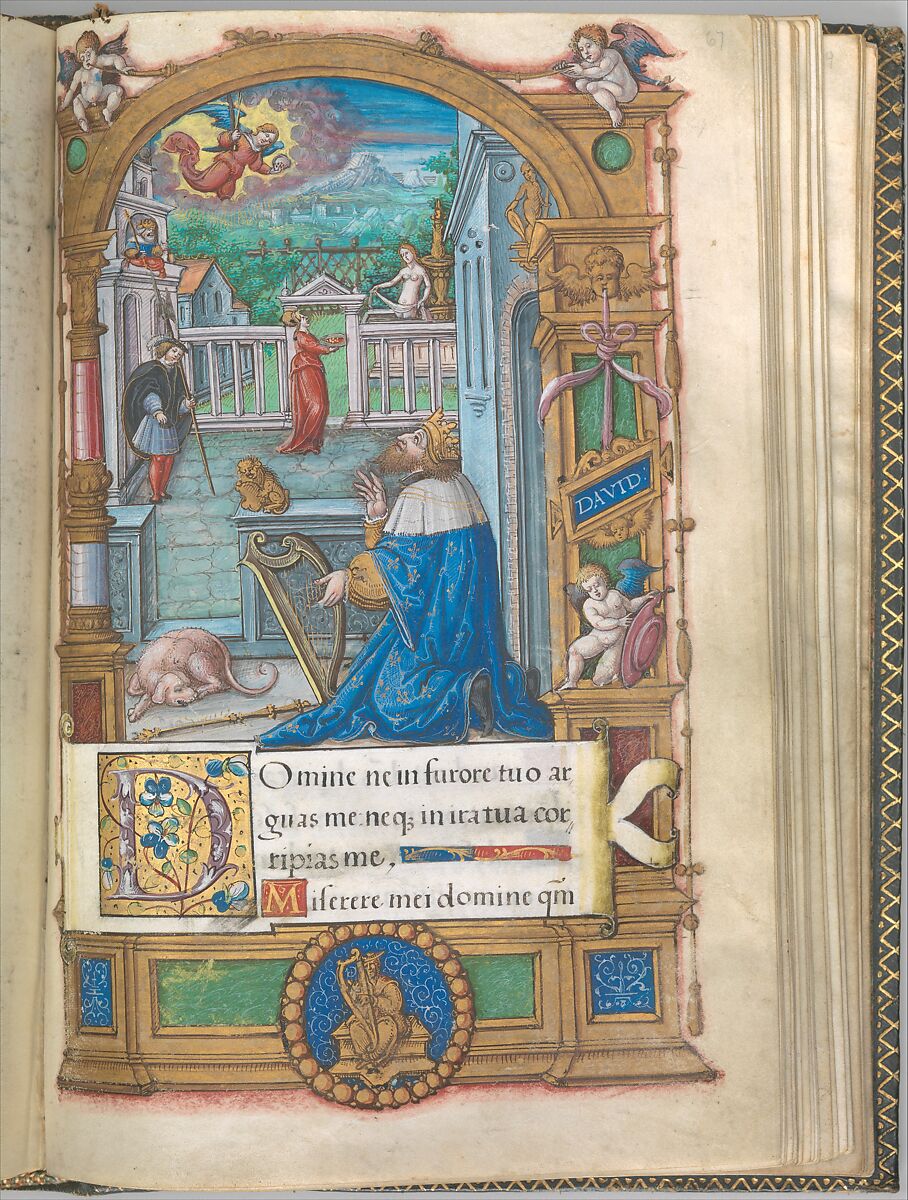 67
DAVID:
Domine ne in furore tuo ar
guas me: neq; in ira tua cor
ripias me,
Miserere mei domine qm̄